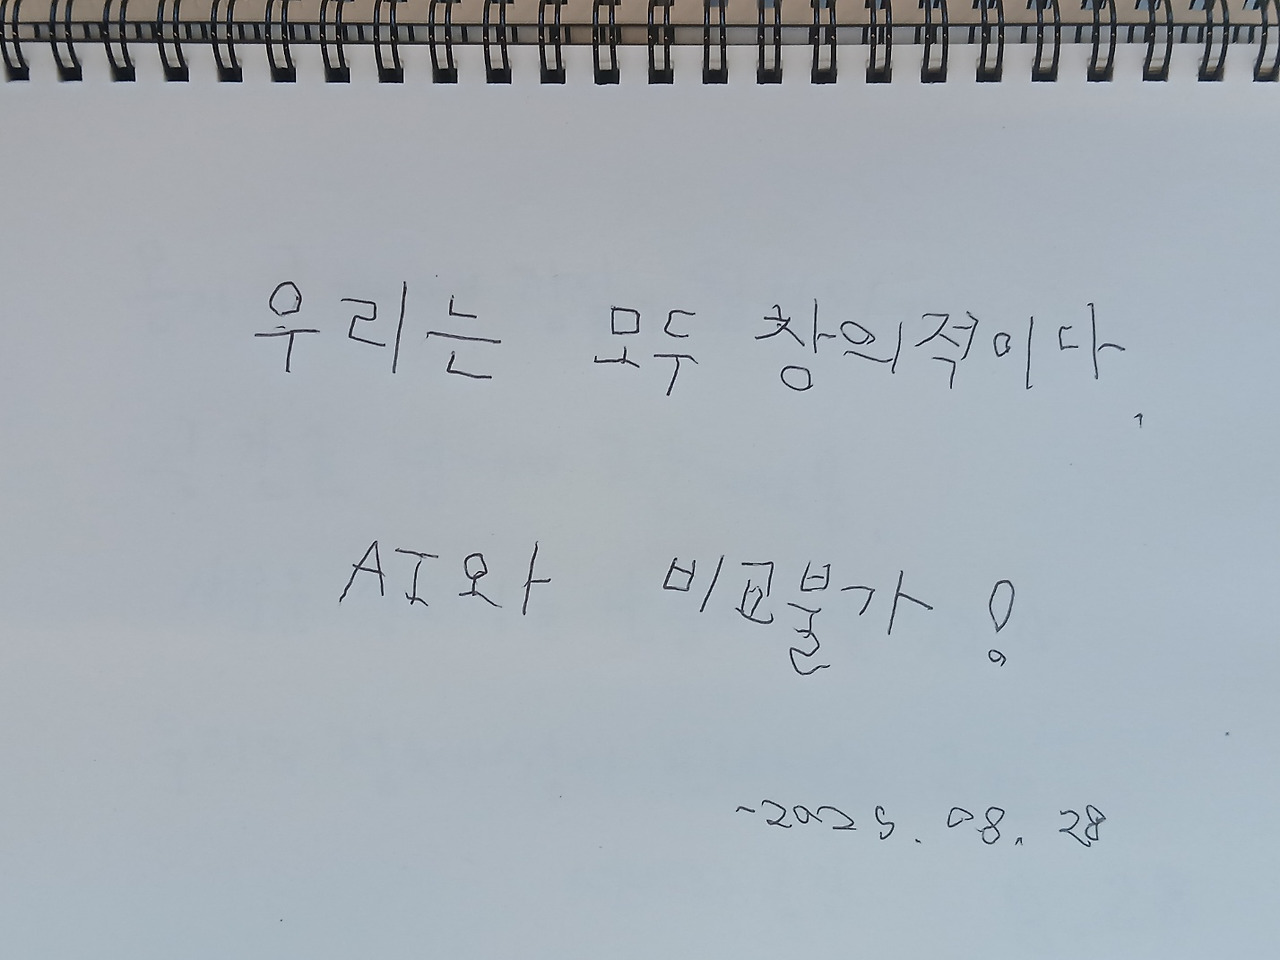 우리는 모두 창의적이다.
AI와 비교불가!
-2025.08.28